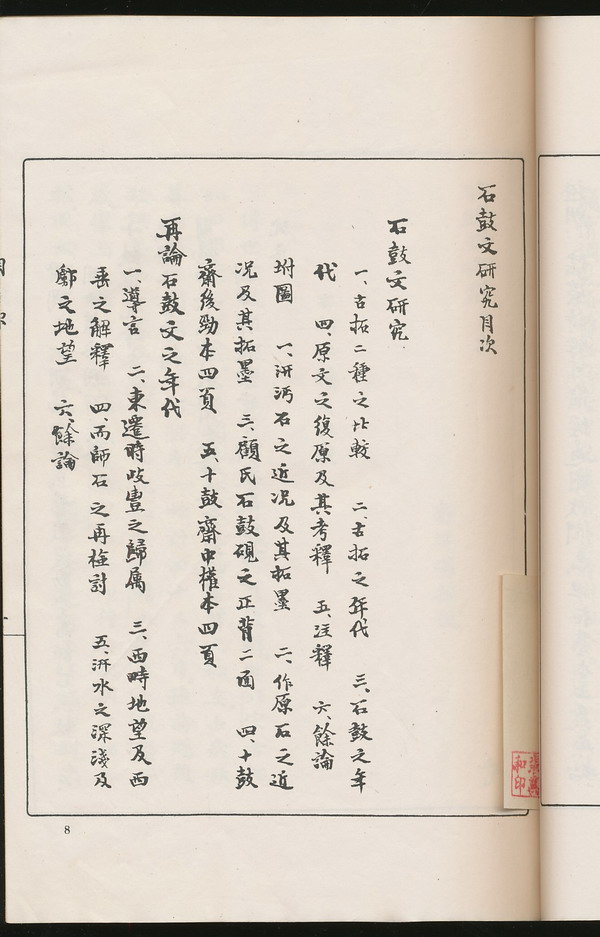 石鼓文研究目次
石鼓文研究
一、古拓二種之比較 二古拓之年代 三、石鼓之年
代 四、原文之復原及其考釋 五、注釋 六、餘論
坿圖 一、汧沔石之近况及其拓墨 二、作原石之近
况及其拓墨 三、顧氏石鼓硯之正背二面 四、十鼓
齋後勁本四頁 五、十鼓齋中權本四頁
再論石鼓文之年代
一、導言 二、東遷時岐豊之歸属 三、西畤地望及西
垂之解釋 四、而師石之再検討 五、汧水之深淺及
鄜之地望 六、餘論
8
和印